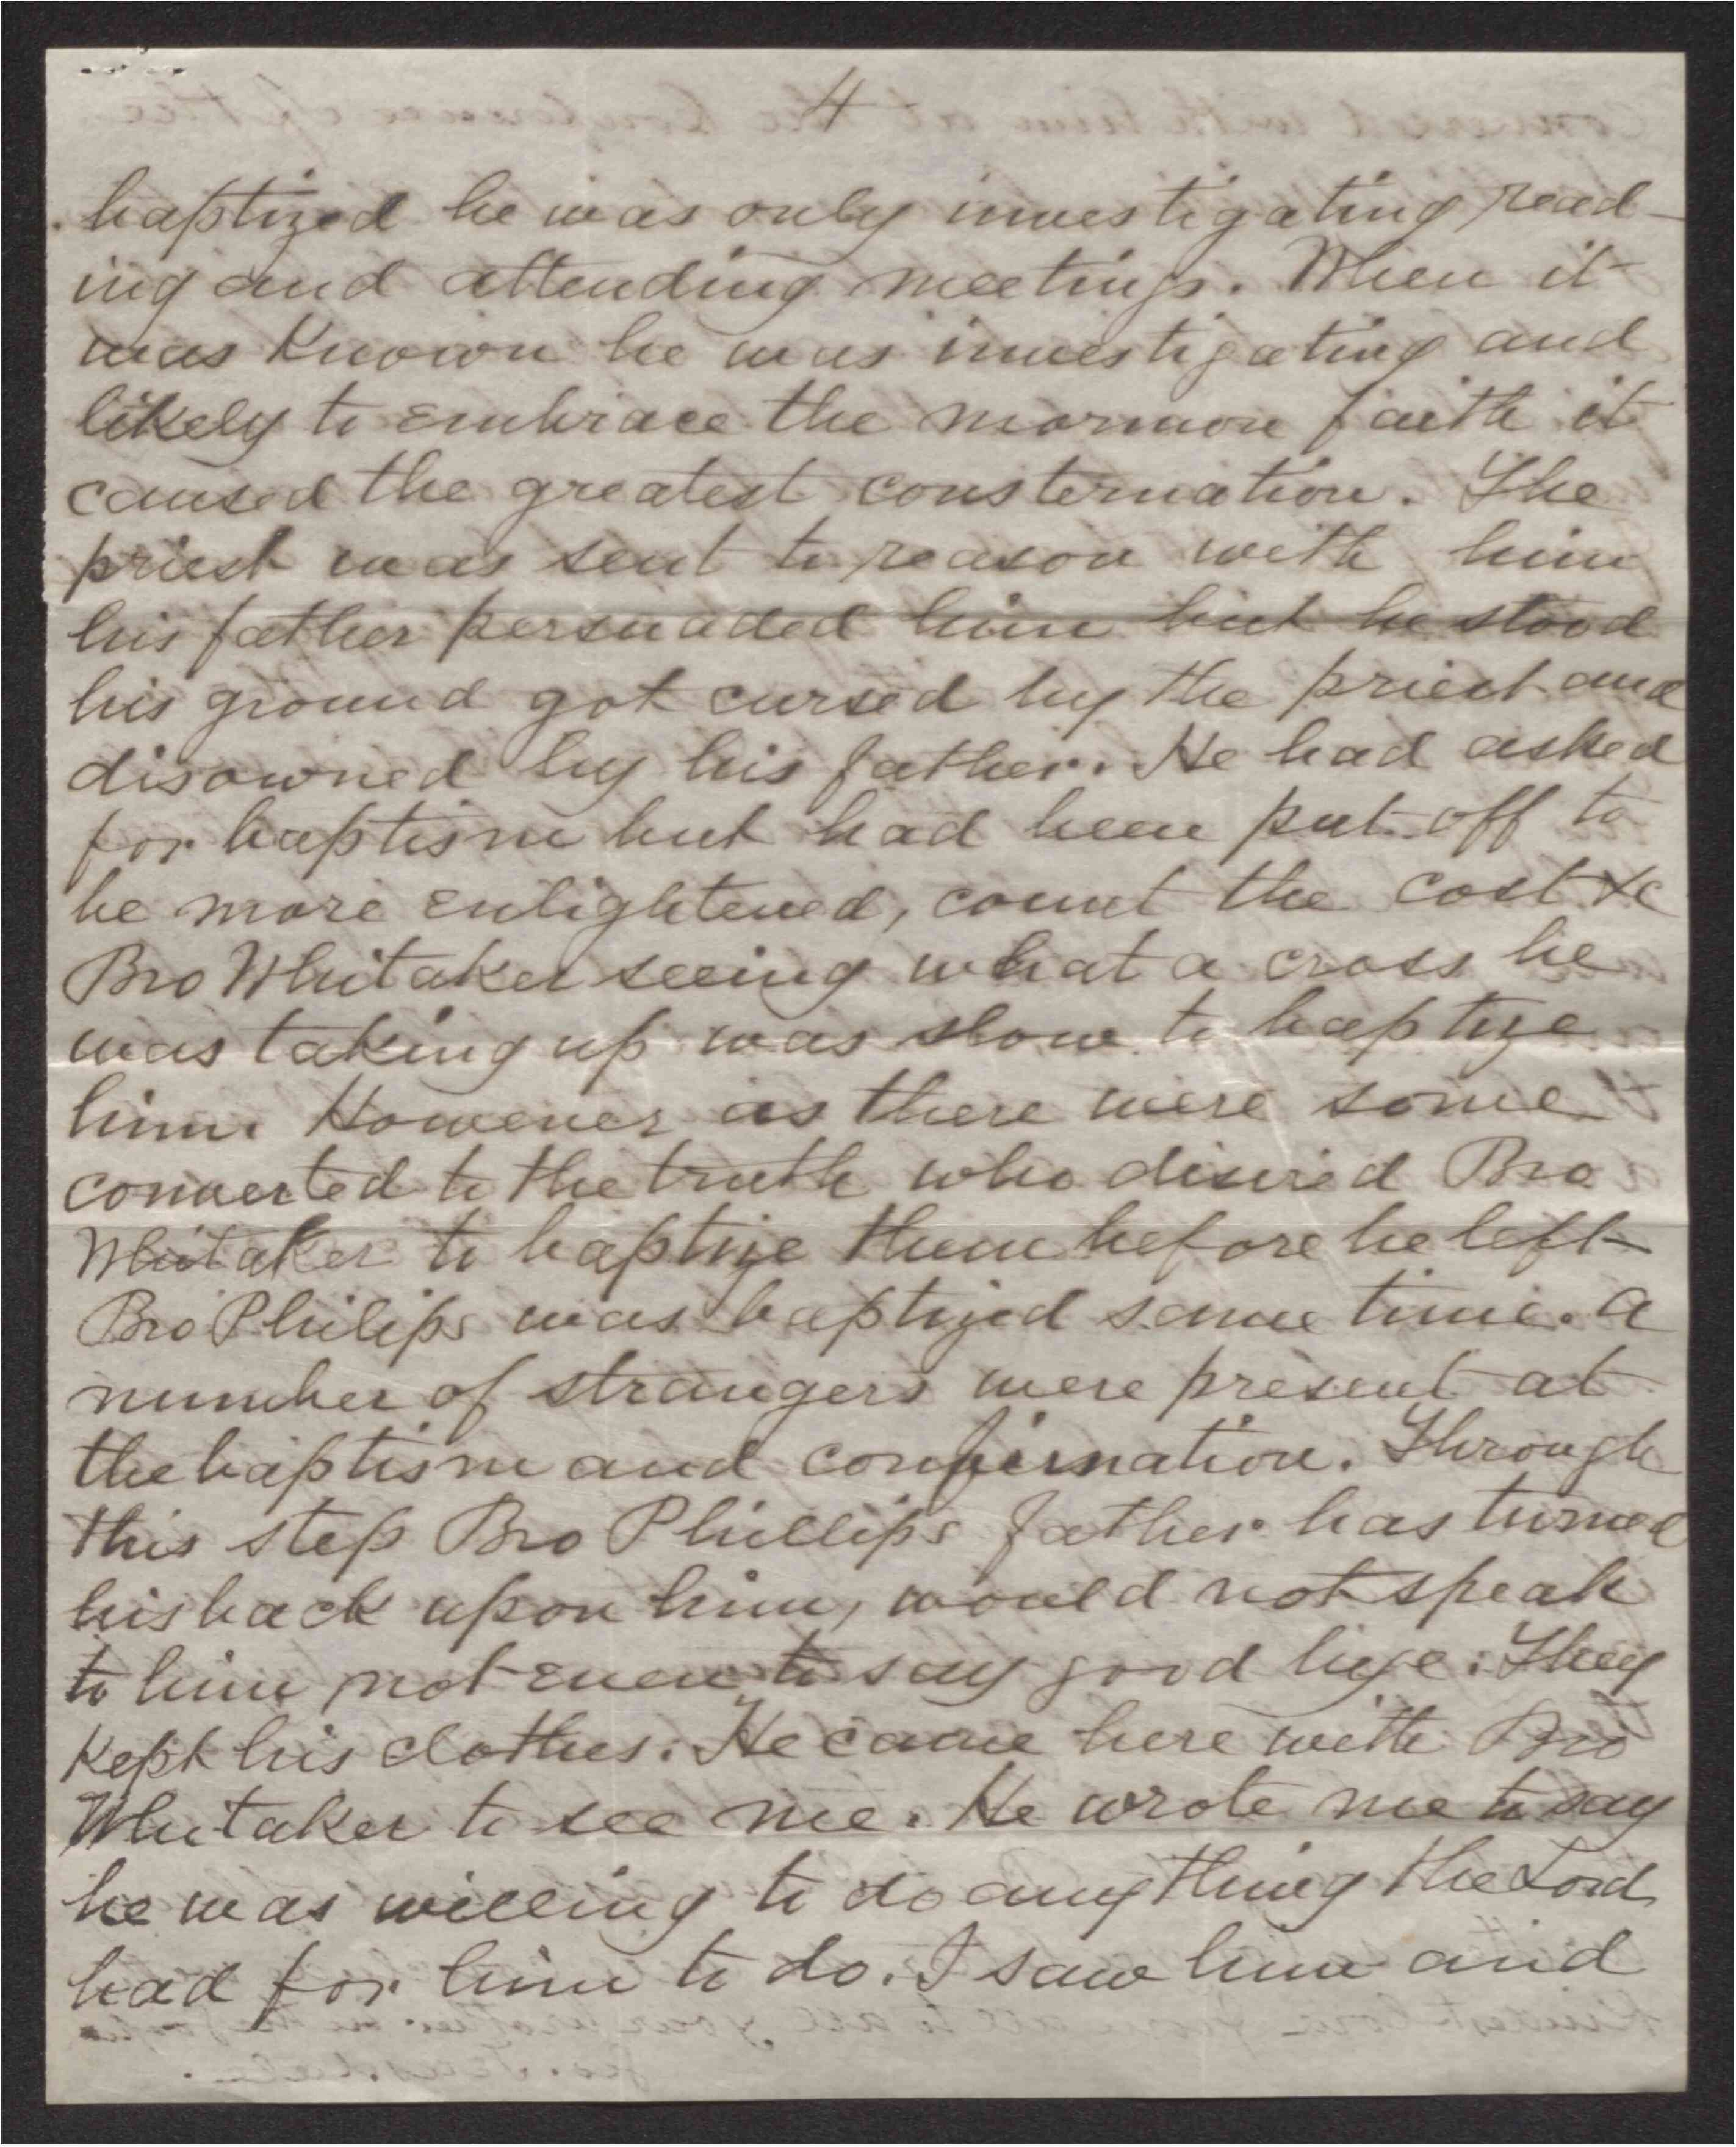 4
baptized he was only investigating read-
ing and attending meetings. When it
was known he was investigating and
likely to embrace the mormon faith it
caused the greatest consternation. The
priest was sent to reason with him
his father persuaded him but he stood
his ground got cursed by the priest and
disowned by his father. He had asked
for baptism but had been put off to
be more enlightened, count the cost &c
Bro Whitaker seeing what a cross he
was taking up was slow to baptize
him. However as there were some
converted to the truth who desired Bro
Whitaker to baptize them before he left
Bro Philips was baptized same time. A
number of strangers were present at
the baptism and confirmation. Through
this step Bro Phillips father has turned
his back upon him, would not speak
to him not even to say good bye. They
kept his clothes. He came here with Bro
Whitaker to see me. He wrote me to say
he was willing to do anything the Lord
had for him to do. I saw him and